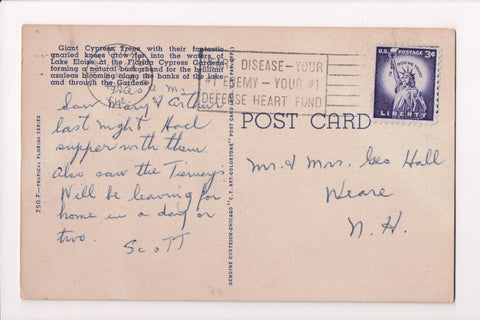 Giant Cypress Trees with their fantastic
gnarled knees grow far into the waters of
Lake Eloise at the Florida Cypress Gardens
forming a natural background for the brilliant
azaleas blooming along the banks of the lake
and through the Gardens.
Saw Mary & Arthur
last night Had
supper with them.
Also saw the Tierneys
Will be leaving for
home in a day or
two.
Scott
250 F—TROPICAL FLORIDA SERIES
GENUINE CURTEICH-CHICAGO "C.T. ART-COLORTONE" POST CARD (REG. U.S. PAT. OFF.)
DISEASE—YOUR
#1 ENEMY—YOUR #1
DEFENSE HEART FUND
U.S. POSTAGE 3¢
IN GOD WE TRUST
LIBERTY
POST CARD
Mr. & Mrs. Geo Hall
Weare
N. H.